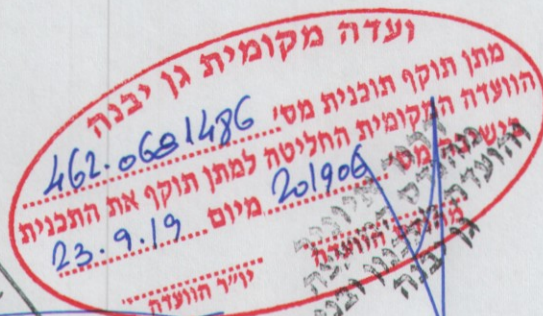 ועדה מקומית גן יבנה
מתן תוקף תוכנית מס' 462-0681486
הוועדה המקומית החליטה למתן תוקף את התכנית
בישיבה מס' 201906 מיום 23.9.19
יו"ר הוועדה
הוועדה
גן יבנה